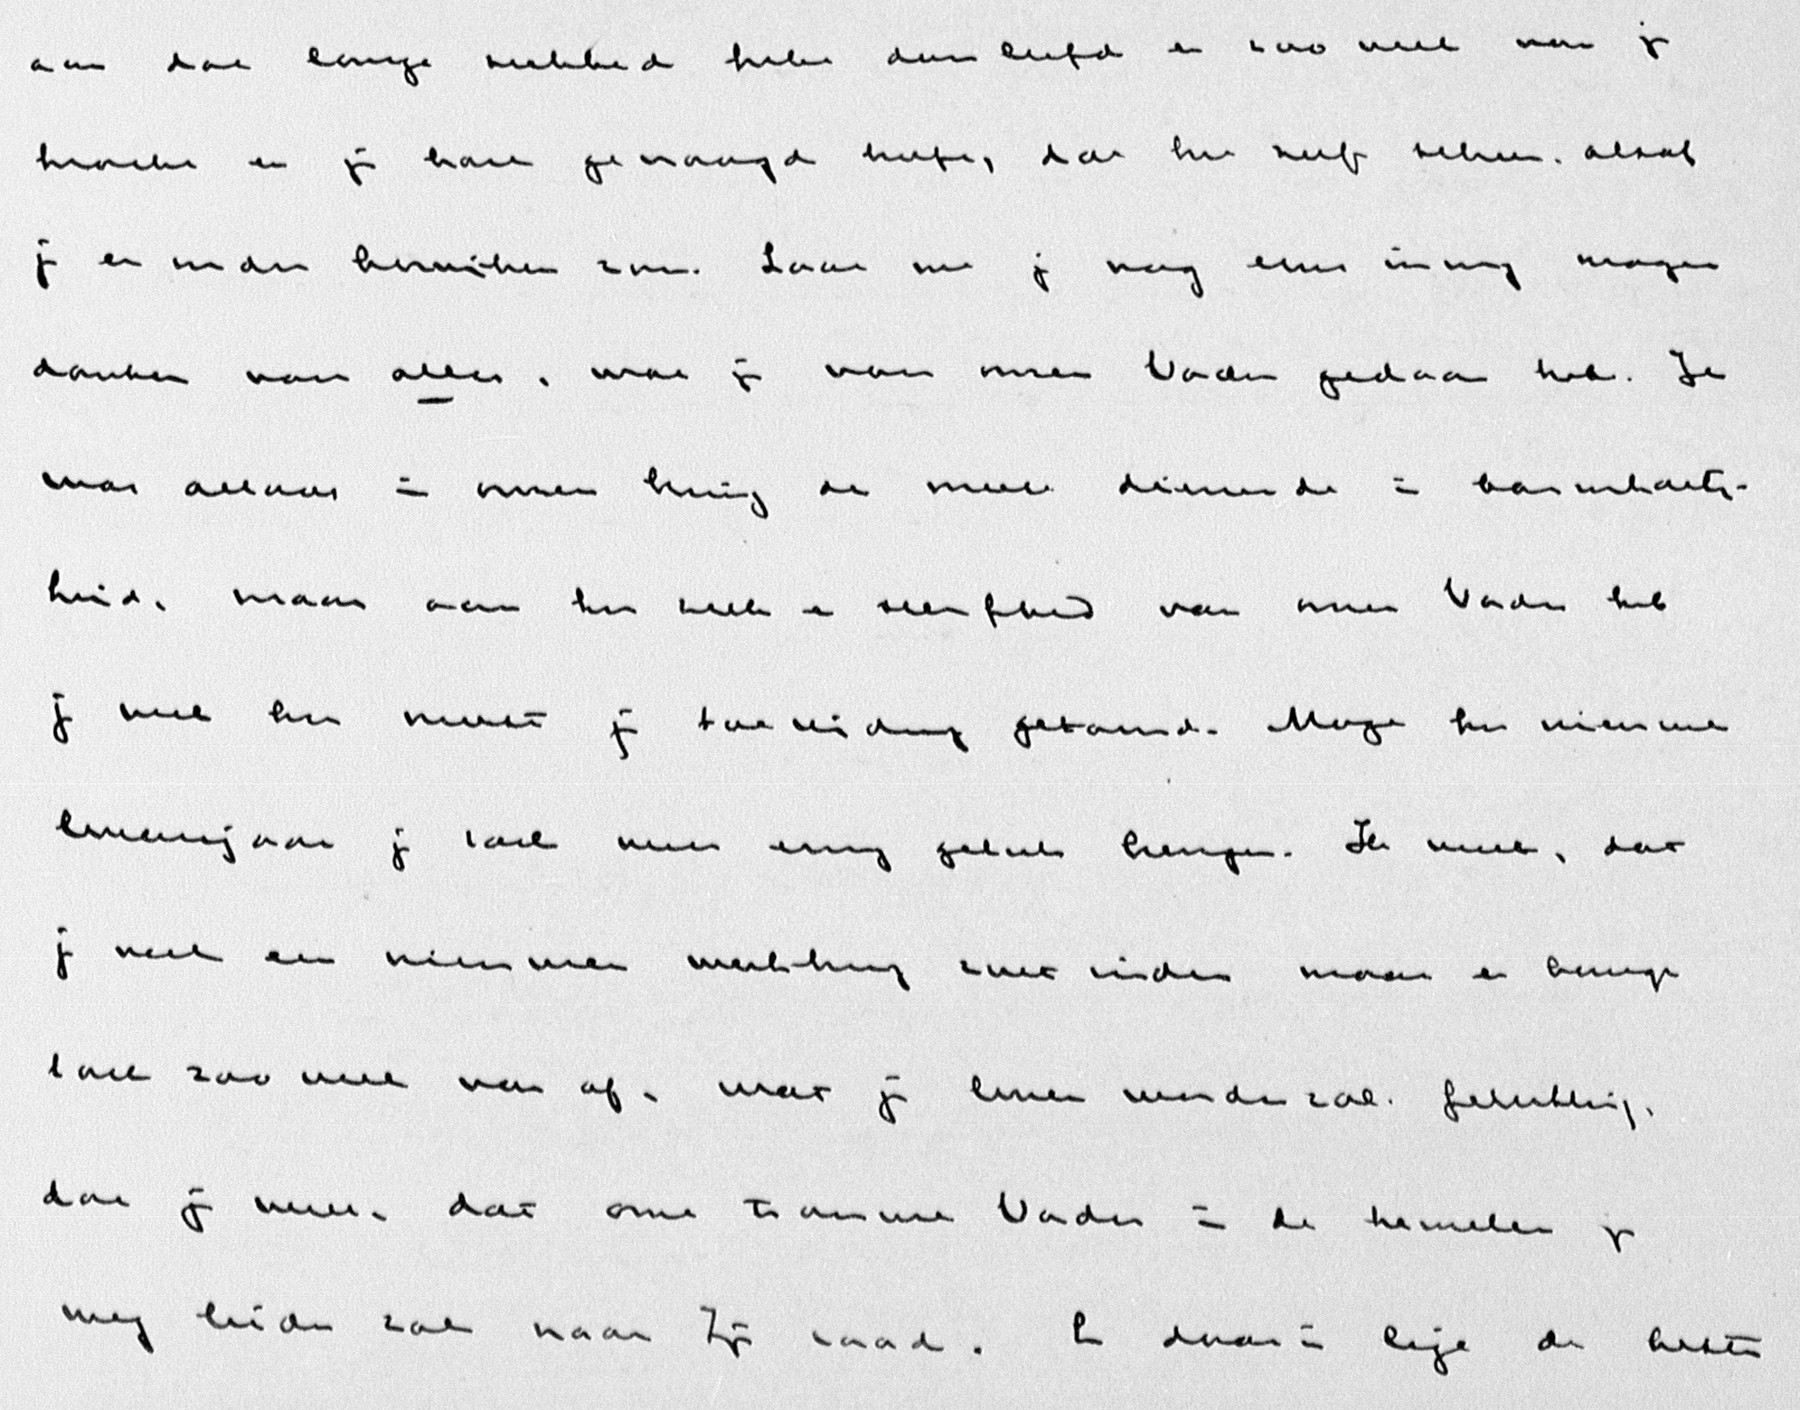 aan dat lange ziekbed hebt doorleefd en zoo veel van je
krachten en je hart gevraagd heeft, dat het zelf scheen. alsof
je er onder bezwijken zou. Laat me je nog eens innig mogen
danken voor alles, wat je voor onzen Vader gedaan hebt. Je
was altoos in onzen kring de meest dienende in barmhartig-
heid, maar aan het ziek en sterfbed van onzen Vader heb
je wel het meest je toewijding getoond. Moge het nieuwe
levensjaar je toch weer eenig geluk brengen. Ik weet, dat
je wel een nieuwen werkkring zult vinden maar er hangt
toch zoo veel van af, wat je leven worden zal. Gelukkig,
dat je weet, dat onze trouwe Vader in de hemelen je
weg leiden zal naar Zijn raad. En daarin ligt de beste